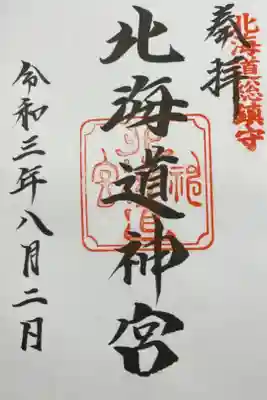 北海道総鎮守
奉拝
北海道神宮
令和三年八月二日